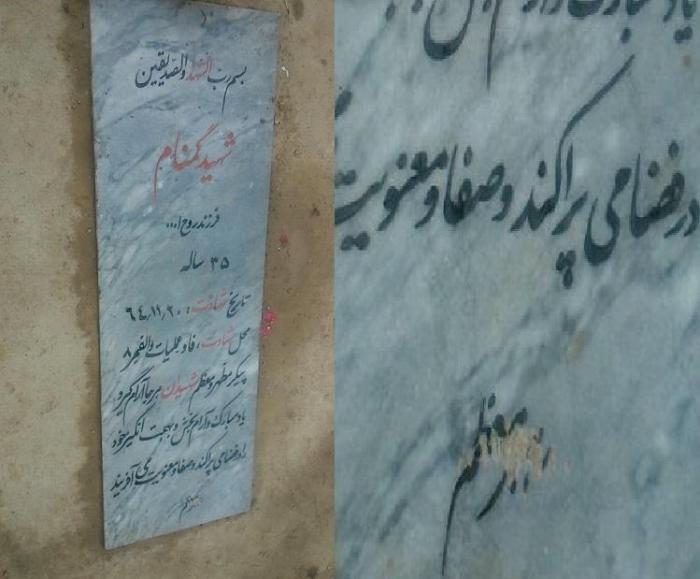 بسم رب الشهدا والصدیقین
شهید گمنام
فرزند روح ا...
۳۵ ساله
تاریخ شهادت: ۶۴٫۱۱٫۲۰
محل شهادت: فاو عملیات والفجر ۸
پیکر مطهر و معظم شهیدان هر جا آرام گیرد
یاد مبارک و آرام بخش و بهجت انگیز خود
را در فضا می پراکند و صفا و معنویت می آفریند
معظم
در فضا می پراکند و صفا و معنویت
معظم